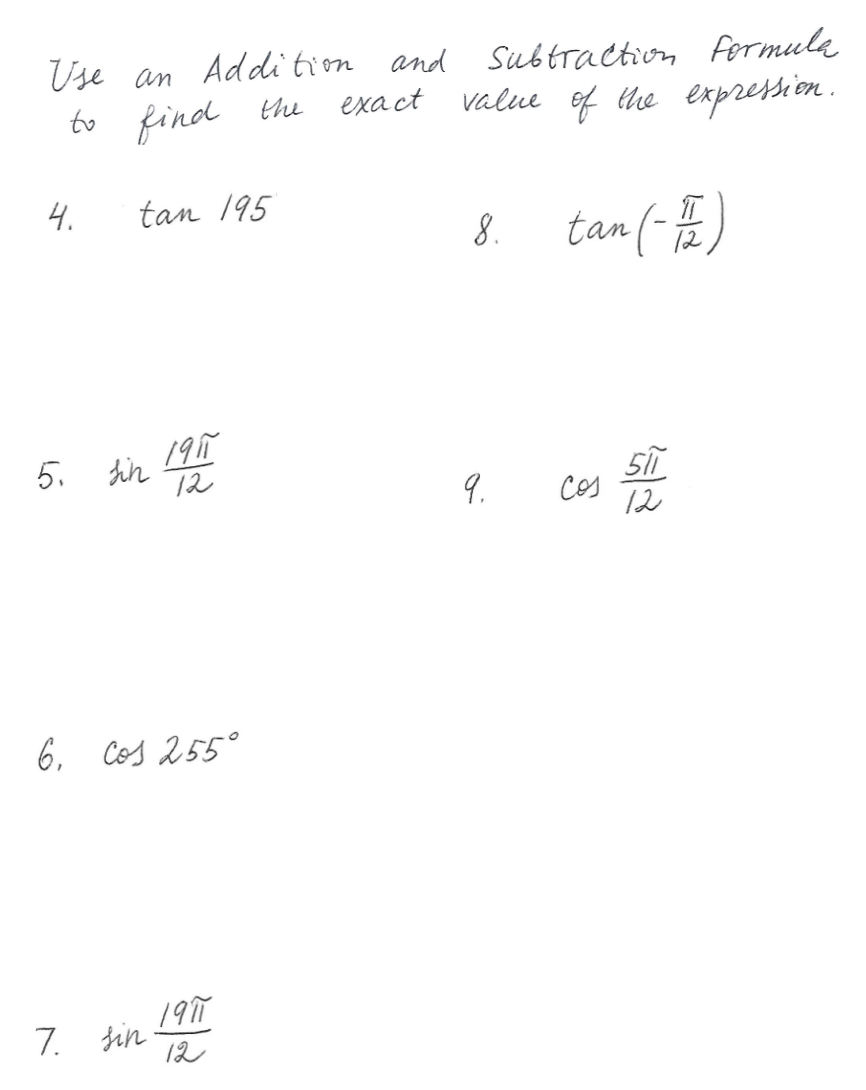 Use an Addition and Subtraction Formula
to find the exact value of the expression.
4. tan 195
8. tan(-π/12)
5. sin 19π/12
9. cos 5π/12
6. cos 255°
7. sin 19π/12